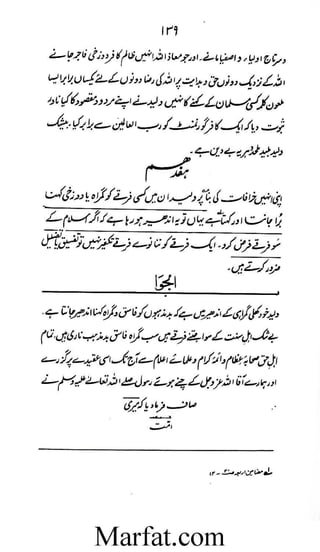 ۱۳۹
و سرتاج اولیاء و اصفیا مانے۔ اور جو معاذ اللہ انہیں ظالم کافر و دوزخی فاجر جانے
اللہ کے نزدیک دونوں حق و ہدایت پر اللہ کی رضا دونوں کے لئے یکساں برابر ایسا
ملعون کلمہ کسی مسلمان کے کہنے کا نہیں ولید نے اپنے مردود مقصود کا کیا نادار
ثبوت دیا کہ ایک کافر گورنمنٹ کو رب العالمین سے برابر کیا۔ بیشک
ولید پلید ملحد دہریہ بے دین ہے۔
ہفدہم
اپنی انہیں خرافات کی بنا پر ولید ان میں کسی فرقے کو گمراہ یا دوزخی کہنا
برا جانتا اور کہتا ہے یہاں تو یہ اندھیر ہو رہا ہے کہ اگر اسلام کے
سو فرقے فرض کرو۔ ایک فرقے کو ننانوے فرقے تکفیر نہیں تو تفسیق یا تضلیل
ضرور کرتے ہیں۔
الجواب
ولید خود کھلی گمراہی کے اندھیر میں ہے کہ بد مذہبوں کو فاسق و گمراہ کہنا اندھیر جانتا ہے۔
بے شک اہل سنت کے سوا جتنے فرقے ہیں سب گمراہ فاسق بد مذہب ناری ہیں۔ تمام
اہل حق صحابہ عظام و ائمہ کرام و علمائے اعلام سے آج تک اسی عقیدے پر گزرے
اور ہمارے آقا اللہ عز و جل کے چنے ہوئے رسول صلے اللہ تعالیٰ علیہ وسلم نے
صاف فرما دیا کہ میری
امت
Marfat.com